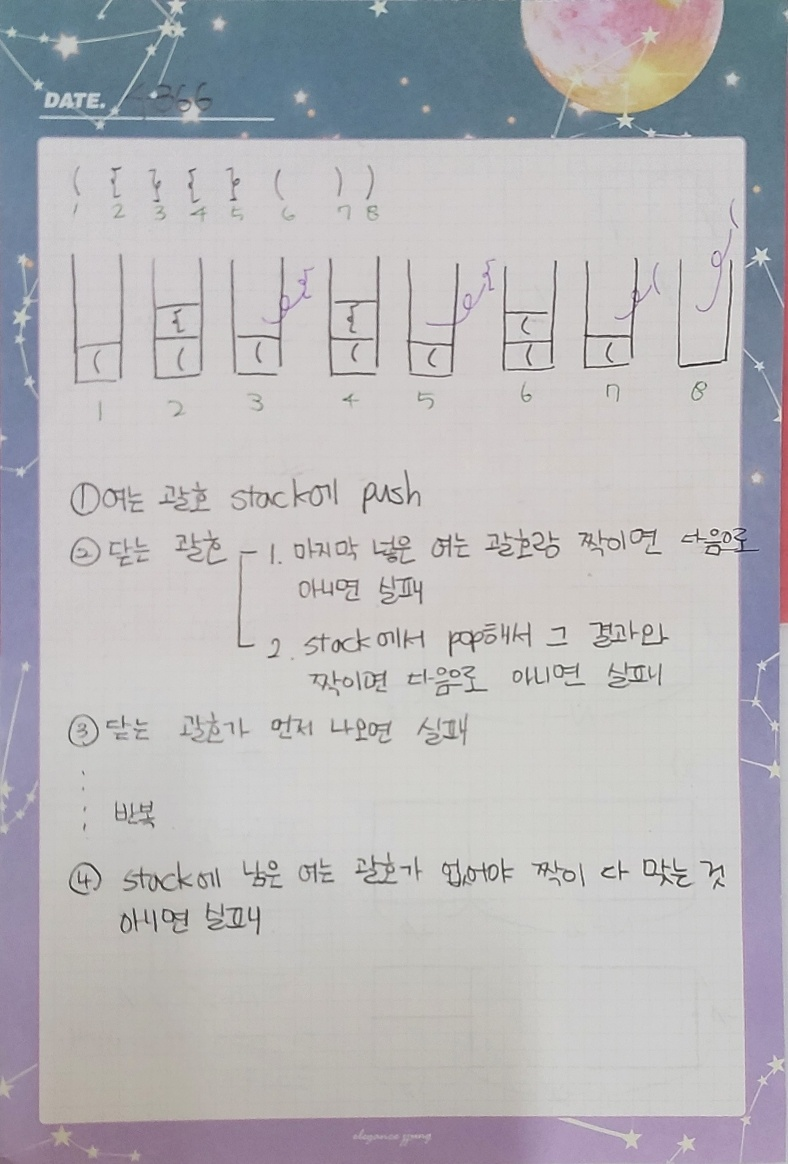 DATE. 4366
( { } { } ( ) )
1 2 3 4 5 6 7 8
{ { ( (
{ { (
( ( ( ( ( ( (
1 2 3 4 5 6 7 8
① 여는 괄호 stack에 push
② 닫는 괄호 1. 마지막 넣은 여는 괄호랑 짝이면 다음으로
아니면 실패
2. stack에서 pop해서 그 결과와
짝이면 다음으로 아니면 실패
③ 닫는 괄호가 먼저 나오면 실패
반복
④ stack에 남은 여는 괄호가 없어야 짝이 다 맞는 것
아니면 실패